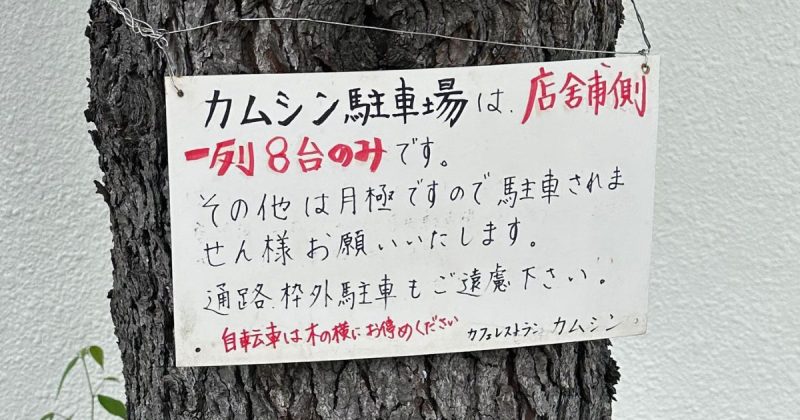 カムシン駐車場は、店舗側
一列8台のみです。
その他は月極ですので駐車されま
せん様お願いいたします。
通路、枠外駐車もご遠慮下さい。
自転車は木の横にお停めください
カフェレストラン カムシン